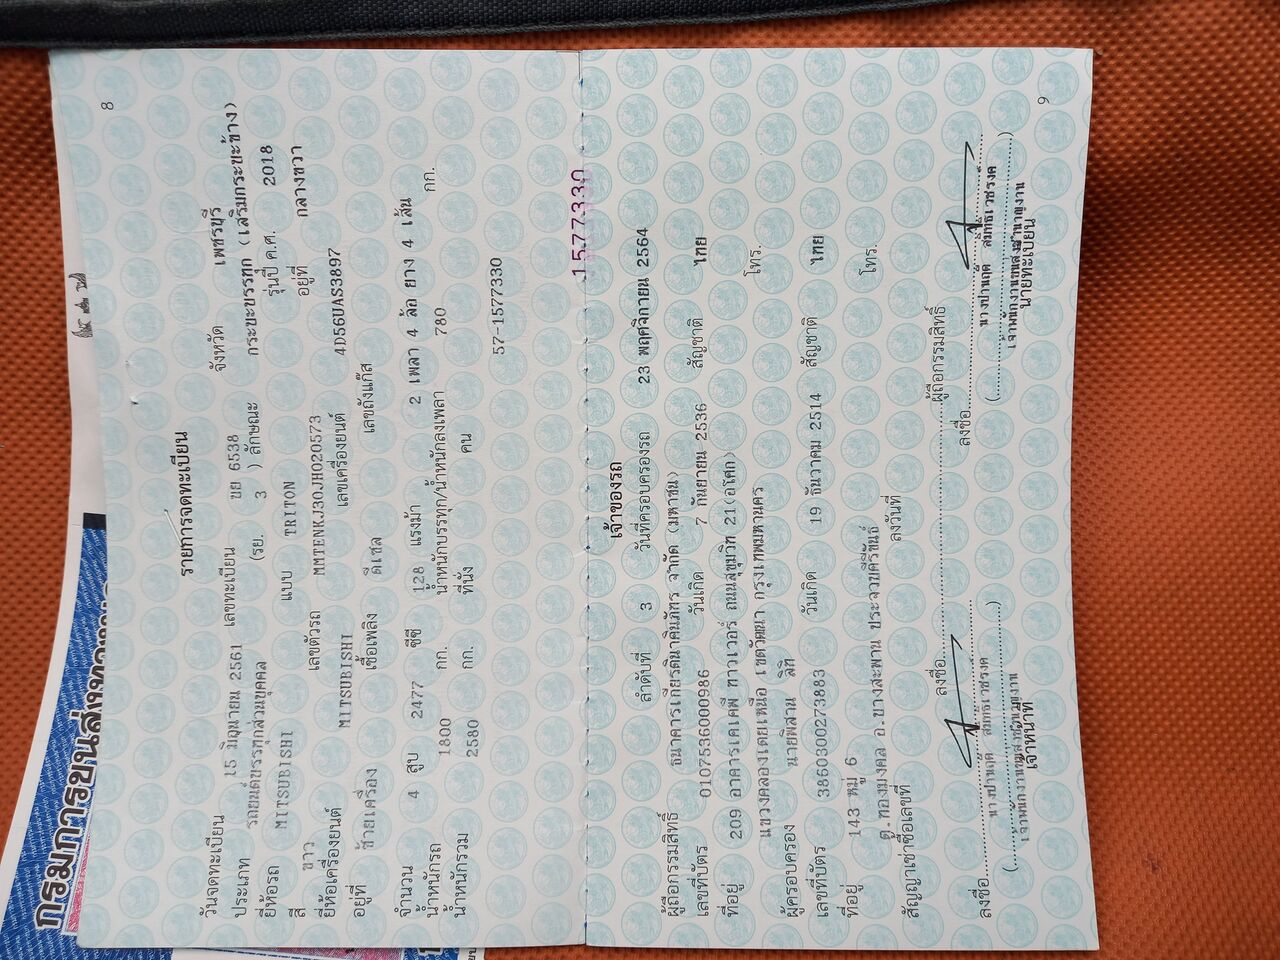 8
รายการจดทะเบียน
วันจดทะเบียน 15 มิถุนายน 2561 เลขทะเบียน ขย 6538 จังหวัด เพชรบุรี
ประเภท รถยนต์บรรทุกส่วนบุคคล (รย. 3 ) ลักษณะ กระบะบรรทุก (เสริมกระบะข้าง)
ยี่ห้อรถ MITSUBISHI แบบ TRITON รุ่นปี ค.ศ. 2018
สี ขาว เลขตัวรถ MMTENKJ30JH020573 อยู่ที่ กลางขวา
ยี่ห้อเครื่องยนต์ MITSUBISHI เลขเครื่องยนต์ 4D56UAS3897
อยู่ที่ ซ้ายเครื่อง เชื้อเพลิง ดีเซล เลขถังแก๊ส
จำนวน 4 สูบ 2477 ซีซี 128 แรงม้า 2 เพลา 4 ล้อ ยาง 4 เส้น
น้ำหนักรถ 1800 กก. น้ำหนักบรรทุก/น้ำหนักลงเพลา 780 กก.
น้ำหนักรวม 2580 กก. ที่นั่ง คน
57-1577330
1577330
เจ้าของรถ
ลำดับที่ 3 วันที่ครอบครองรถ 23 พฤศจิกายน 2564
ผู้ถือกรรมสิทธิ์ ธนาคารเกียรตินาคินภัทร จำกัด (มหาชน)
เลขที่บัตร 0107536000986 วันเกิด 7 กันยายน 2536 สัญชาติ ไทย
ที่อยู่ 209 อาคารเคเคพี ทาวเวอร์ ถนนสุขุมวิท 21(อโศก)
แขวงคลองเตยเหนือ เขตวัฒนา กรุงเทพมหานคร โทร.
ผู้ครอบครอง นายพิสาน ลิกิ
เลขที่บัตร 3860300273883 วันเกิด 19 ธันวาคม 2514 สัญชาติ ไทย
ที่อยู่ 143 หมู่ 6
ต.ทองมงคล อ.บางสะพาน ประจวบคีรีขันธ์ โทร.
สัญญาเช่าซื้อเลขที่ ลงวันที่
ลงชื่อ ผู้ถือกรรมสิทธิ์
ลงชื่อ ลงชื่อ
เจ้าพนักงานขนส่งชำนาญงาน เจ้าพนักงานขนส่งชำนาญงาน
เจ้าหน้าที่ นายทะเบียน
9
กรมการขนส่งทางบก